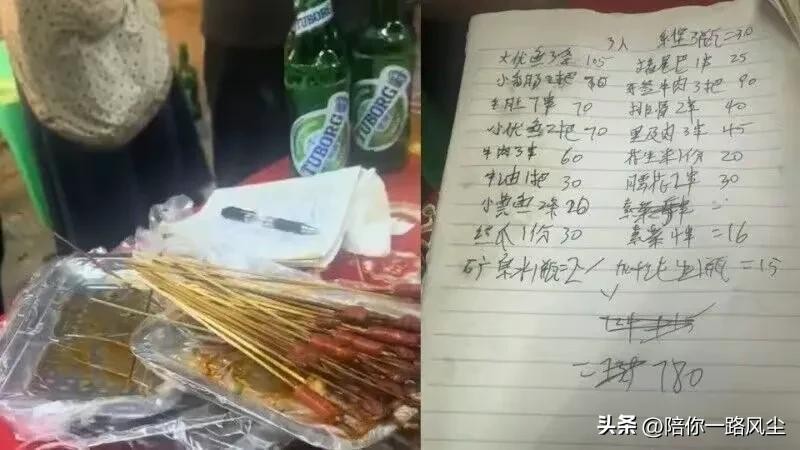 TUBORG
TUBORG
3人 乐堡3瓶=30
大优鱼3条 105 猪尾巴1串 25
小香肠2把 牛肉3把 90
7串 70 排骨2串 40
小优鱼2把 70 里及肉3串 45
牛肉3串 60 花生米1份 20
牛油1把 30 腰花2串 30
小黄鱼2条 20 素菜 =
丝瓜1份 30 素菜4串 =16
矿泉水1瓶=2 加多宝1瓶 =15
= 780
头条 @陪你一路风尘